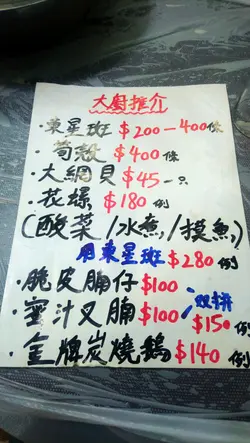 大廚推介
·東星斑 $200-400條
·筍殼 $400條
·大網貝 $45一只
·花螺 $180例
(酸菜/水煮/摸魚)
用東星斑 $280例
·脆皮腩仔 $100
·蜜汁叉腩 $100 双拼 $150例
·金牌炭燒鵝 $140例